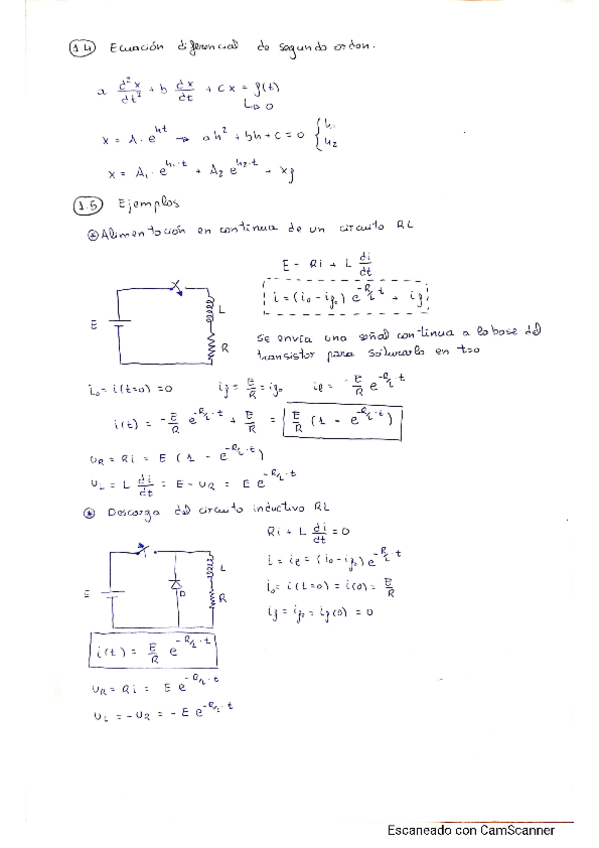 1.4 Ecuación diferencial de segundo orden.
a d²x/dt² + b dx/dt + cx = f(t)
↳ 0
x = A · e^ht → ah² + bh + c = 0 { h₁
h₂
x = A₁ · e^h₁·t + A₂ e^h₂·t + xf
1.5 Ejemplos
Alimentación en continua de un circuito RL
E = Ri + L di/dt
i = (i₀ - if₀) e^-R/L t + if
E
L
R
Se envía una señal continua a la base del
transistor para saturarlo en t=0
i₀ = i(t=0) = 0 if = E/R = if₀ il = - E/R e^-R/L t
i(t) = - E/R e^-R/L·t + E/R = E/R (1 - e^-R/L·t)
UR = Ri = E (1 - e^-R/L·t)
UL = L di/dt = E - UR = E e^-R/L·t
Descarga del circuito inductivo RL
Ri + L di/dt = 0
i = il = (i₀ - if₀) e^-R/L·t
i₀ = i(t=0) = i(0) = E/R
if = if₀ = if(0) = 0
E
D
L
R
i(t) = E/R e^-R/L·t
UR = Ri = E e^-R/L·t
UL = -UR = -E e^-R/L·t
Escaneado con CamScanner